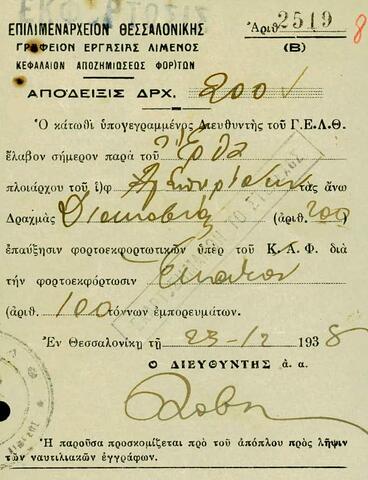 ΕΚΦΟΡΤΩΣΙΣ
ΕΠΙΛΙΜΕΝΑΡΧΕΙΟΝ ΘΕΣΣΑΛΟΝΙΚΗΣ
Ἀριθ. 2519
8
ΓΡΑΦΕΙΟΝ ΕΡΓΑΣΙΑΣ ΛΙΜΕΝΟΣ
(Β)
ΚΕΦΑΛΑΙΟΝ ΑΠΟΖΗΜΙΩΣΕΩΣ ΦΟΡ)ΤΩΝ
ΑΠΟΔΕΙΞΙΣ ΔΡΧ. 200
Ὁ κάτωθι ὑπογεγραμμένος Διευθυντὴς τοῦ Γ.Ε.Λ.Θ.
ἔλαβον σήμερον παρὰ τοῦ
πλοιάρχου τοῦ ἱ)φ τὰς ἄνω
Δραχμὰς Διακοσίας (ἀριθ. 200)
ἐπαύξησιν φορτοεκφορτωτικῶν ὑπὲρ τοῦ Κ.Α.Φ. διὰ
τὴν φορτοεκφόρτωσιν Ἑκατὸν
(ἀριθ. 100 τόννων ἐμπορευμάτων.
Ἐν Θεσσαλονίκῃ τῇ 23-12 1938
Ὁ ΔΙΕΥΘΥΝΤΗΣ ἀ. α.
Ἡ παροῦσα προσκομίζεται πρὸ τοῦ ἀπόπλου πρὸς λῆψιν
τῶν ναυτιλιακῶν ἐγγράφων.